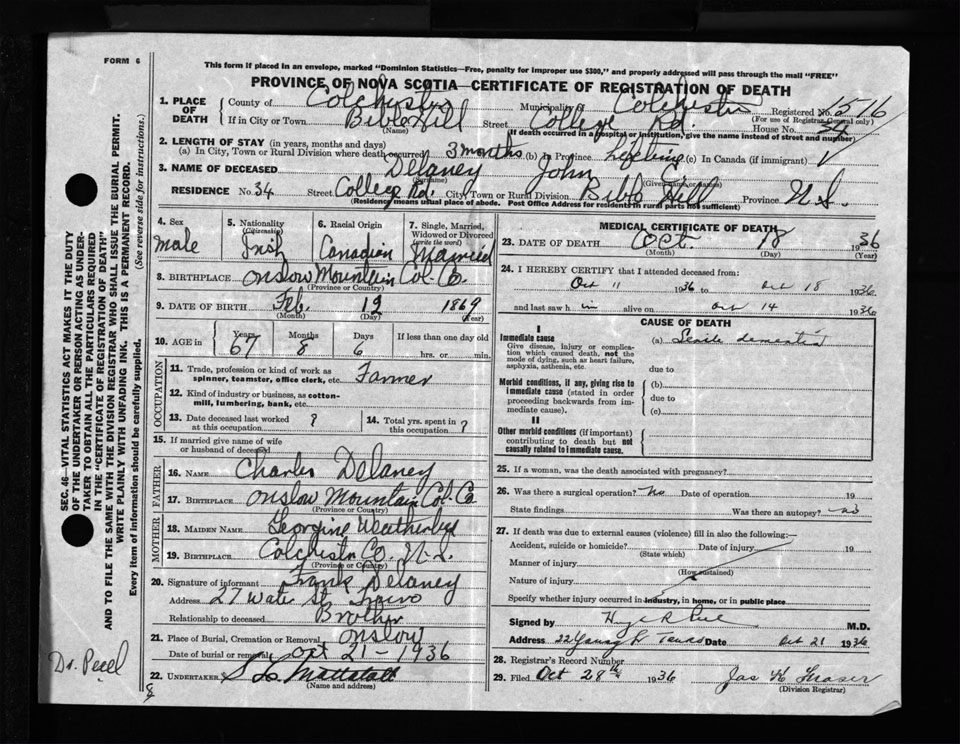 FORM 6
This form if placed in an envelope, marked "Dominion Statistics—Free, penalty for improper use $300," and properly addressed will pass through the mail "FREE"
PROVINCE OF NOVA SCOTIA—CERTIFICATE OF REGISTRATION OF DEATH
1. PLACE OF DEATH
County of Colchester Municipality of Colchester Registered No. 1516
(For use of Registrar General only)
If in City or Town Bible Hill Street College Rd. House No. 34
(Name) (If death occurred in a hospital or institution, give name instead of street and number)
2. LENGTH OF STAY (in years, months and days)
(a) In City, Town or Rural Division where death occurred 3 months (b) in Province Lifetime (c) In Canada (if immigrant)
3. NAME OF DECEASED Delaney John C
(Surname) (Given or names)
RESIDENCE No. 34 Street College Rd. City Town or Rural Division Bible Hill Province N.S.
(Residence means usual place of abode. Post Office Address for residents in rural parts not sufficient)
4. Sex
male
5. Nationality
(Citizenship)
Irish
6. Racial Origin
Canadian
7. Single, Married, Widowed or Divorced
(write the word)
Married
8. BIRTHPLACE Onslow Mountain Col. Co.
(Province or Country)
9. DATE OF BIRTH Feb. 12 1869
(Month) (Day) (Year)
10. AGE in Years 67 Months 8 Days 6 If less than one day old
hrs. or min.
OCCUPATION
11. Trade, profession or kind of work as spinner, teamster, office clerk, etc. Farmer
12. Kind of industry or business, as cotton-mill, lumbering, bank, etc.
13. Date deceased last worked at this occupation ?
14. Total yrs. spent in this occupation ?
15. If married give name of wife or husband of deceased
FATHER
16. NAME Charles Delaney
17. BIRTHPLACE Onslow Mountain Col. Co
(Province or Country)
MOTHER
18. MAIDEN NAME Georgine Weatherby
19. BIRTHPLACE Colchester Co. N.S.
(Province or Country)
20. Signature of informant Frank Delaney
Address 27 Water St Truro
Relationship to deceased Brother
21. Place of Burial, Cremation or Removal Onslow
Date of burial or removal Oct 21 – 1936
22. UNDERTAKER
(Name and address)
MEDICAL CERTIFICATE OF DEATH
23. DATE OF DEATH Oct. 18 1936
(Month) (Day) (Year)
24. I HEREBY CERTIFY that I attended deceased from:
Oct 11 1936 to Oct 18 1936
and last saw him alive on Oct 14 1936
CAUSE OF DEATH
I
Immediate cause
Give disease, injury or complication which caused death, not the mode of dying, such as heart failure, asphyxia, asthenia, etc.
(a) Senile dementia
due to
Morbid conditions, if any, giving rise to immediate cause (stated in order proceeding backwards from immediate cause).
(b)
due to
(c)
II
Other morbid conditions (if important) contributing to death but not causally related to immediate cause.
25. If a woman, was the death associated with pregnancy?
26. Was there a surgical operation? No Date of operation 19
State findings Was there an autopsy? no
27. If death was due to external causes (violence) fill in also the following:—
Accident, suicide or homicide? Date of injury 19
(State which)
Manner of injury
(How sustained)
Nature of injury
Specify whether injury occurred in industry, in home, or in public place
Signed by M.D.
Address 22 Young St Truro Date Oct 21 1936
28. Registrar's Record Number
29. Filed Oct 28th 1936 Jas K Fraser
(Division Registrar)
SEC. 46—VITAL STATISTICS ACT MAKES IT THE DUTY
OF THE UNDERTAKER OR PERSON ACTING AS UNDER-
TAKER TO OBTAIN ALL THE PARTICULARS REQUIRED
IN THE "CERTIFICATE OF REGISTRATION OF DEATH"
AND TO FILE THE SAME WITH THE DIVISION REGISTRAR WHO SHALL ISSUE THE BURIAL PERMIT.
WRITE PLAINLY WITH UNFADING INK. THIS IS A PERMANENT RECORD.
Every item of information should be carefully supplied. (See reverse side for instructions.)
Dr. Peel